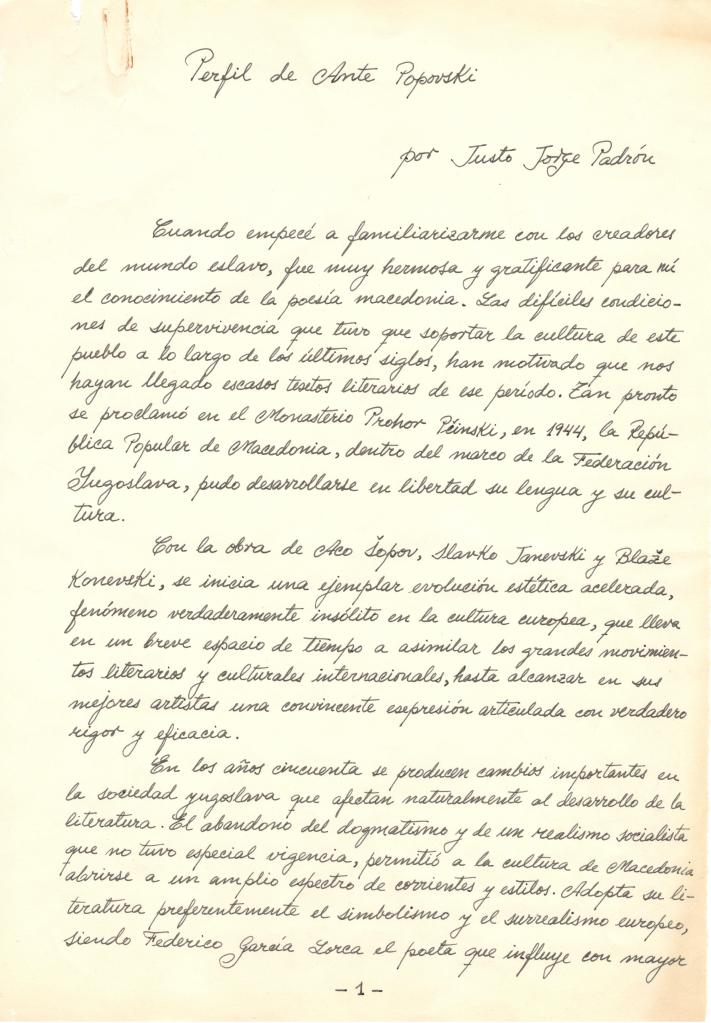 Perfil de Ante Popovski
por Justo Jorge Padrón
Cuando empecé a familiarizarme con los creadores
del mundo eslavo, fue muy hermosa y gratificante para mí
el conocimiento de la poesía macedonia. Las difíciles condicio-
nes de supervivencia que tuvo que soportar la cultura de este
pueblo a lo largo de los últimos siglos, han motivado que nos
hayan llegado escasos textos literarios de ese período. Tan pronto
se proclamó en el Monasterio Prohor Pčinski, en 1944, la Repú-
blica Popular de Macedonia, dentro del marco de la Federación
Yugoslava, pudo desarrollarse en libertad su lengua y su cul-
tura.
Con la obra de Aco Šopov, Slavko Janevski y Blaže
Konevski, se inicia una ejemplar evolución estética acelerada,
fenómeno verdaderamente insólito en la cultura europea, que lleva
en un breve espacio de tiempo a asimilar los grandes movimien-
tos literarios y culturales internacionales, hasta alcanzar en sus
mejores artistas una convincente expresión articulada con verdadero
rigor y eficacia.
En los años cincuenta se producen cambios importantes en
la sociedad yugoslava que afectan naturalmente al desarrollo de la
literatura. El abandono del dogmatismo y de un realismo socialista
que no tuvo especial vigencia, permitió a la cultura de Macedonia
abrirse a un amplio espectro de corrientes y estilos. Adopta su li-
teratura preferentemente el simbolismo y el surrealismo europeo,
siendo Federico García Lorca el poeta que influye con mayor
- 1 -